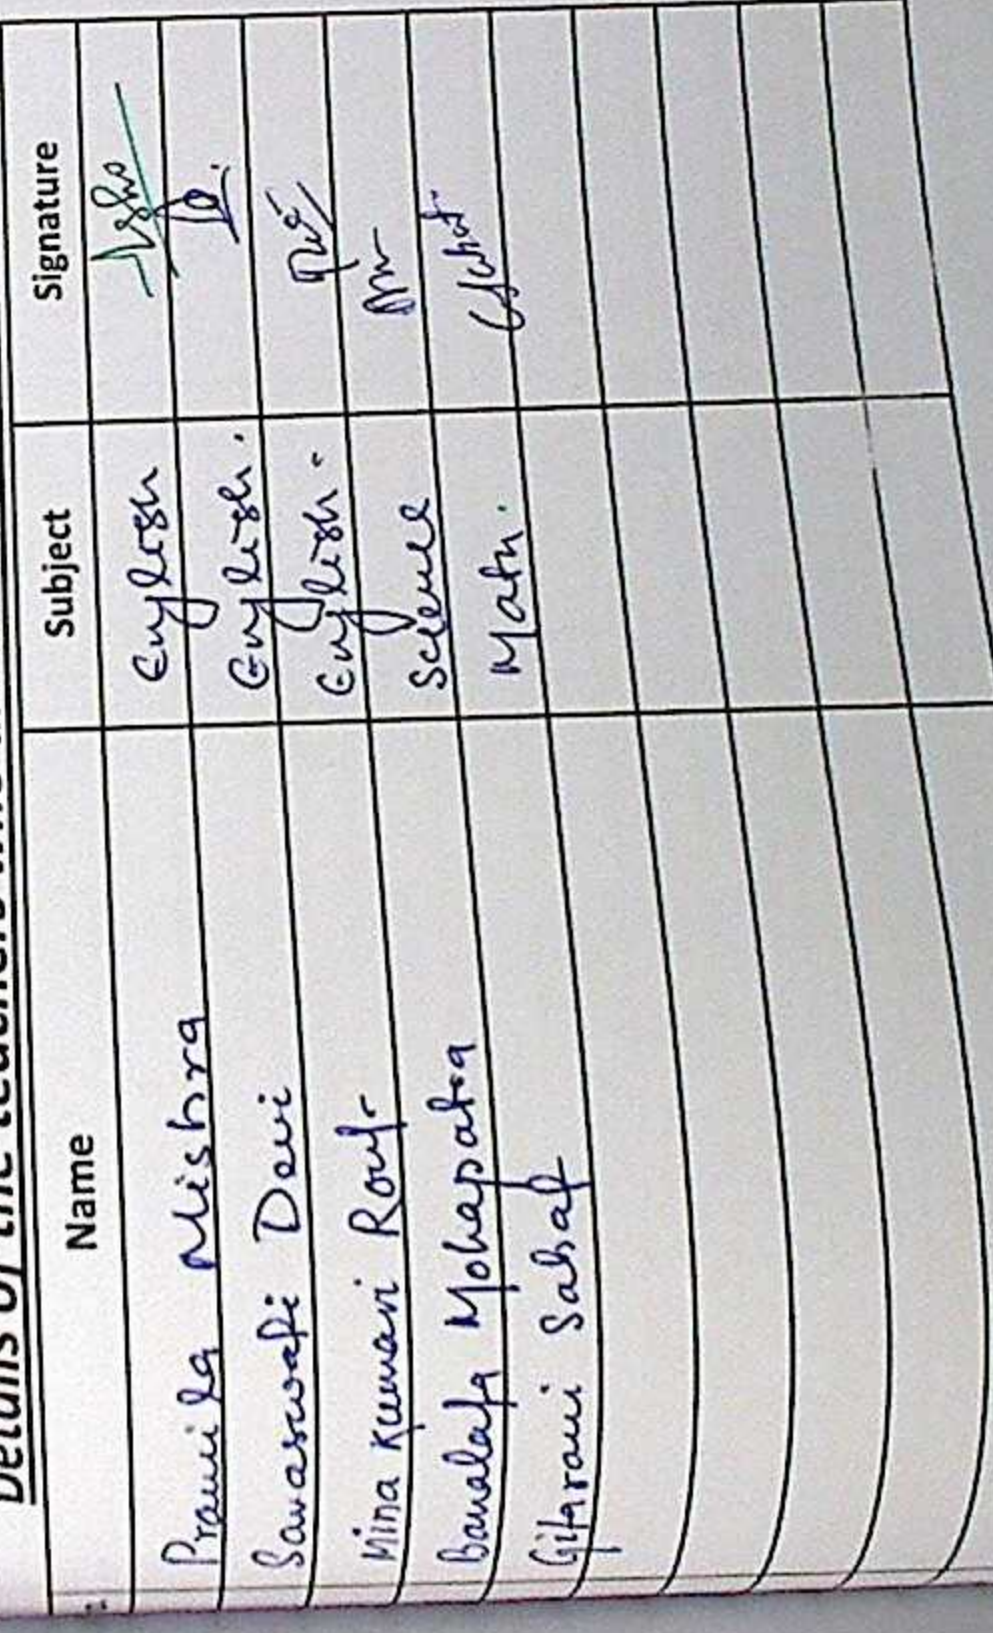 Details of the teachers
Name Subject Signature
Pramila Mishra English
Saraswati Devi English.
Mina Kumari Rout English.
Banalata Mohapatra Science
Gitarani Sahat Math.